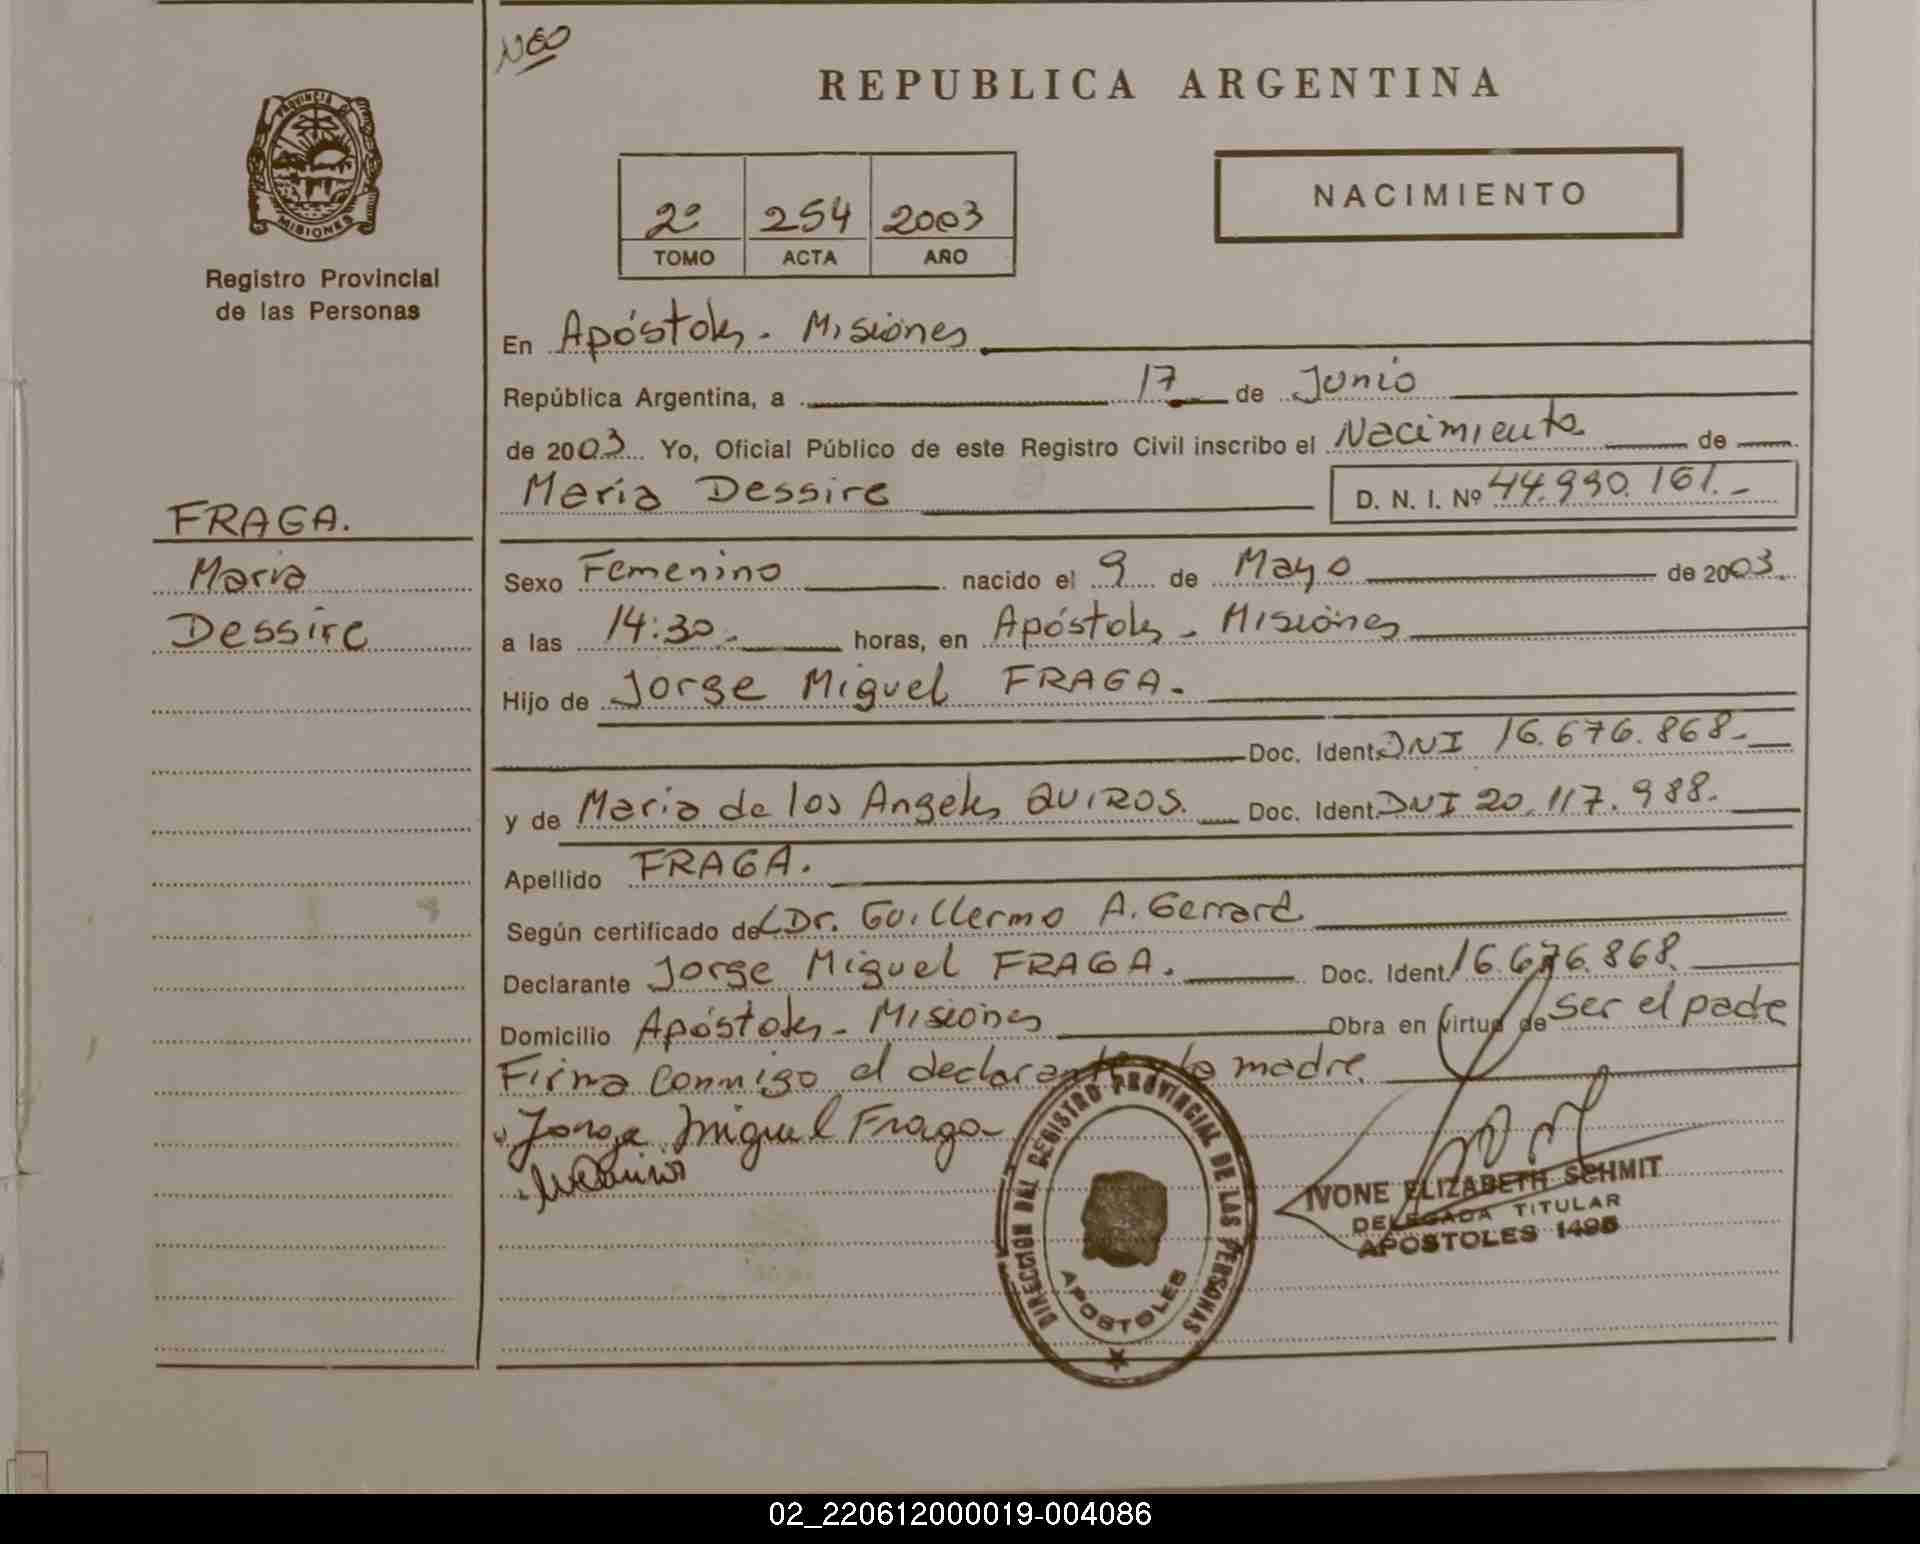 NEO
REPUBLICA ARGENTINA
PROVINCIA DE
MISIONES
Registro Provincial
de las Personas
2º 254 2003
TOMO ACTA AÑO
NACIMIENTO
En Apóstoles - Misiones
República Argentina, a 17 de Junio
de 2003 Yo, Oficial Público de este Registro Civil inscribo el Nacimiento de
María Dessire D. N. I. Nº 44.990.161.-
FRAGA.
María
Dessire
Sexo Femenino nacido el 9 de Mayo de 2003
a las 14:30.- horas, en Apóstoles - Misiones
Hijo de Jorge Miguel FRAGA.-
Doc. Ident. DNI 16.676.868.-
y de María de los Angeles QUIROS. Doc. Ident. DNI 20.117.988.
Apellido FRAGA.
Según certificado del Dr. Guillermo A. Gerrard
Declarante Jorge Miguel FRAGA. Doc. Ident. 16.676.868.
Domicilio Apóstoles - Misiones Obra en virtud de ser el padre
Firma conmigo el declarante y la madre
Jorge Miguel Fraga
DIRECCION DEL REGISTRO PROVINCIAL DE LAS PERSONAS
APOSTOLES
IVONE ELIZABETH SCHMIT
DELEGADA TITULAR
APOSTOLES 1495
02_220612000019-004086